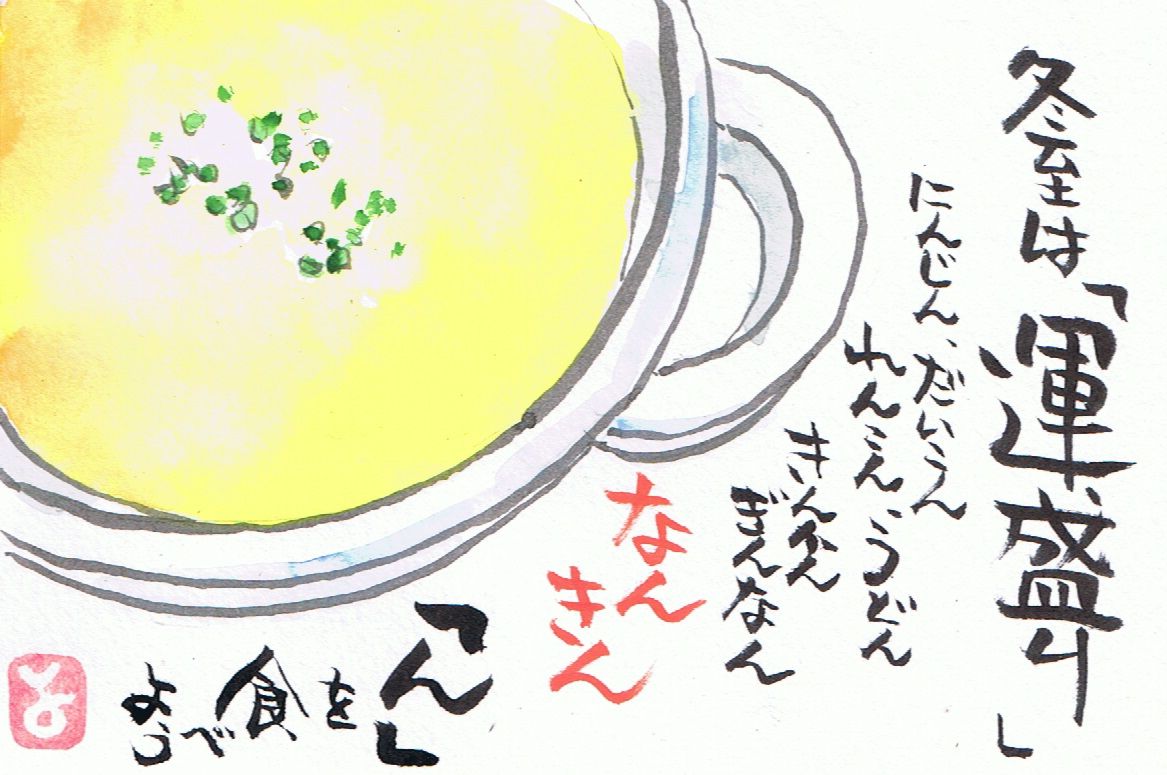 冬至は「運盛り」
にんじん、だいこん
れんこん、うどん
きんかん
ぎんなん
なん
きん
「ん」を食べよう